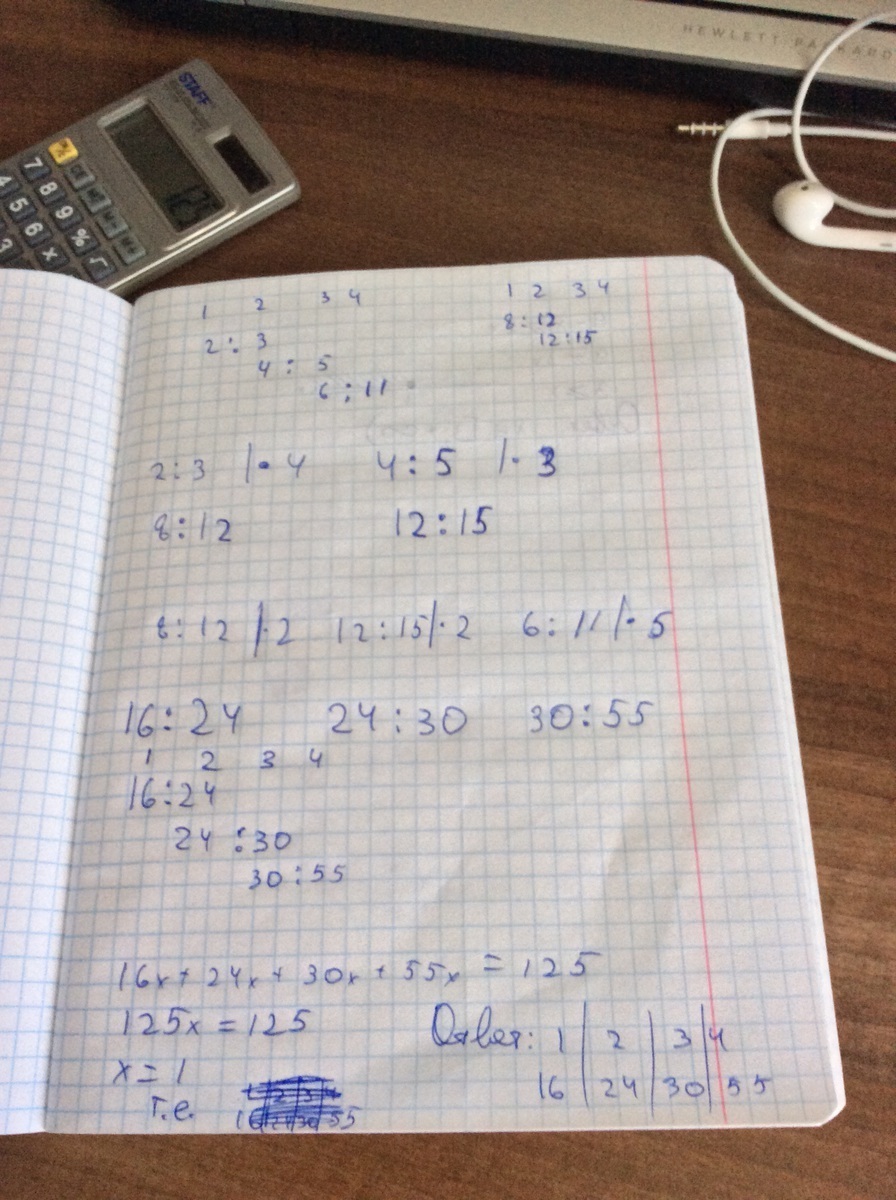 HEWLETT-PACKARD
STAFF
125
7 8 9 %
4 5 6 x √
3
1 2 3 4
2 : 3
4 : 5
6 : 11
1 2 3 4
8 : 12
12 : 15
2 : 3 |· 4 4 : 5 |· 3
8 : 12 12 : 15
8 : 12 |· 2 12 : 15 |· 2 6 : 11 |· 5
16 : 24 24 : 30 30 : 55
1 2 3 4
16 : 24
24 : 30
30 : 55
16x + 24x + 30x + 55x = 125
125x = 125
x = 1
т.е.
Ответ: 1 | 2 | 3 | 4
16 | 24 | 30 | 55